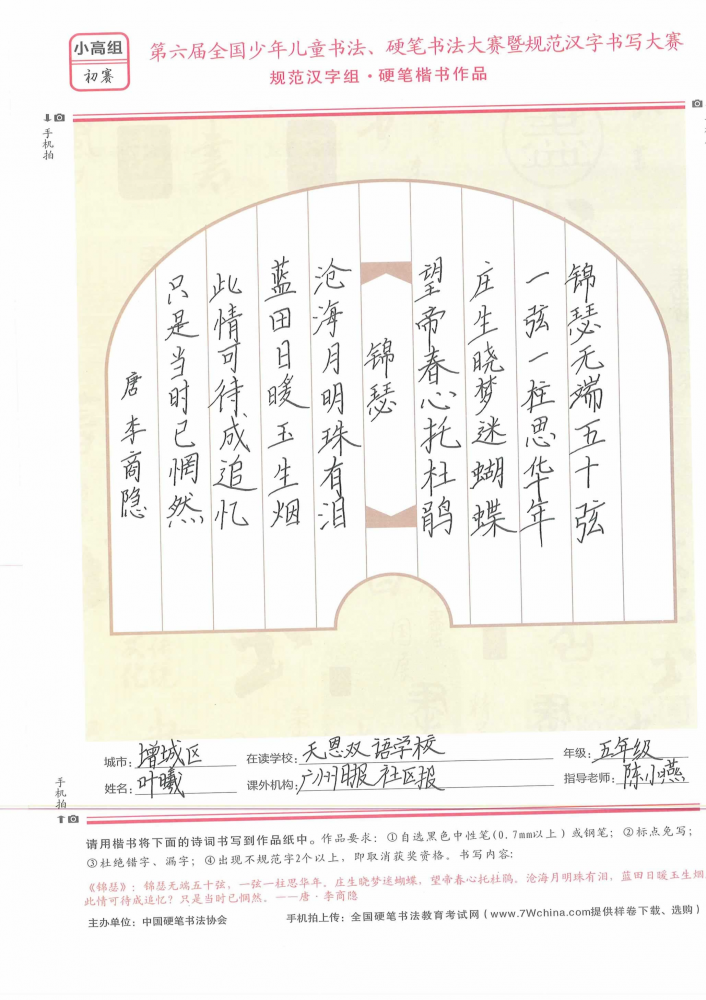 小高组
初赛
第六届全国少年儿童书法、硬笔书法大赛暨规范汉字书写大赛
规范汉字组·硬笔楷书作品
手机拍
锦瑟无端五十弦
一弦一柱思华年
庄生晓梦迷蝴蝶
望帝春心托杜鹃
锦瑟
沧海月明珠有泪
蓝田日暖玉生烟
此情可待成追忆
只是当时已惘然
唐 李商隐
城市：增城区
在读学校：天恩双语学校
年级：五年级
姓名：叶曦
课外机构：广州日报社区报
指导老师：陈小燕
手机拍
请用楷书将下面的诗词书写到作品纸中。作品要求：①自选黑色中性笔(0.7mm以上）或钢笔；②标点免写；
③杜绝错字、漏字；④出现不规范字2个以上，即取消获奖资格。书写内容：
《锦瑟》：锦瑟无端五十弦，一弦一柱思华年。庄生晓梦迷蝴蝶，望帝春心托杜鹃。沧海月明珠有泪，蓝田日暖玉生烟
此情可待成追忆？只是当时已惘然。——唐·李商隐
主办单位：中国硬笔书法协会
手机拍上传：全国硬笔书法教育考试网（www.7Wchina.com提供样卷下载、选购）